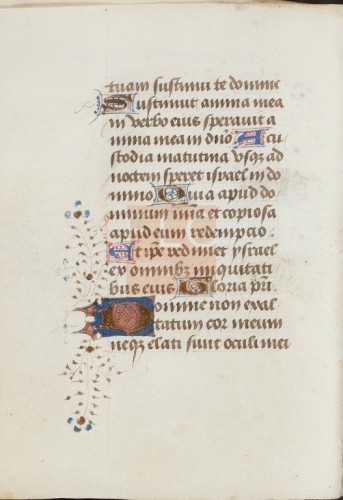 tuam sustinui te domine
Sustinuit anima mea
in verbo eius speravit a
nima mea in dño A cu
stodia matutina usqꝫ ad
noctem speret israel in do
mino Quia apud do
minum mia et copiosa
apud eum redempcio
Et ipe redimet ysrael
ex omnibꝫ iniquitati
bus eius Gloria pri
Domine non exal
tatum cor meum
neqꝫ elati sunt oculi mei